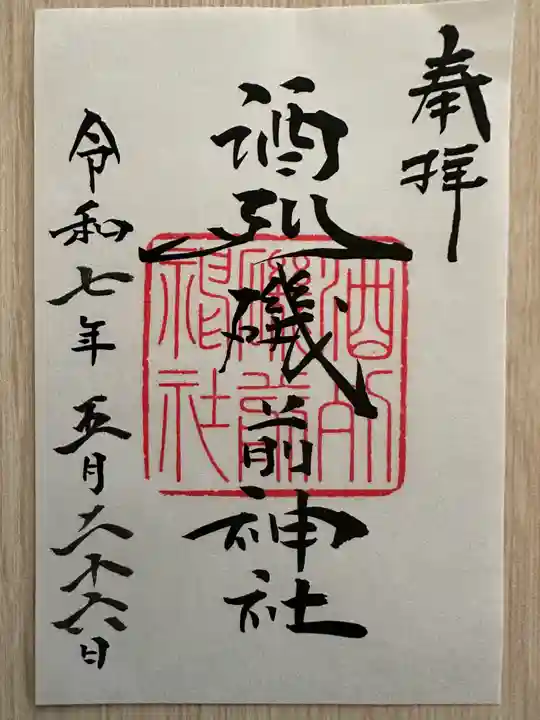 奉拝
酒列磯前神社
令和七年五月二十六日
酒列
磯前
神社